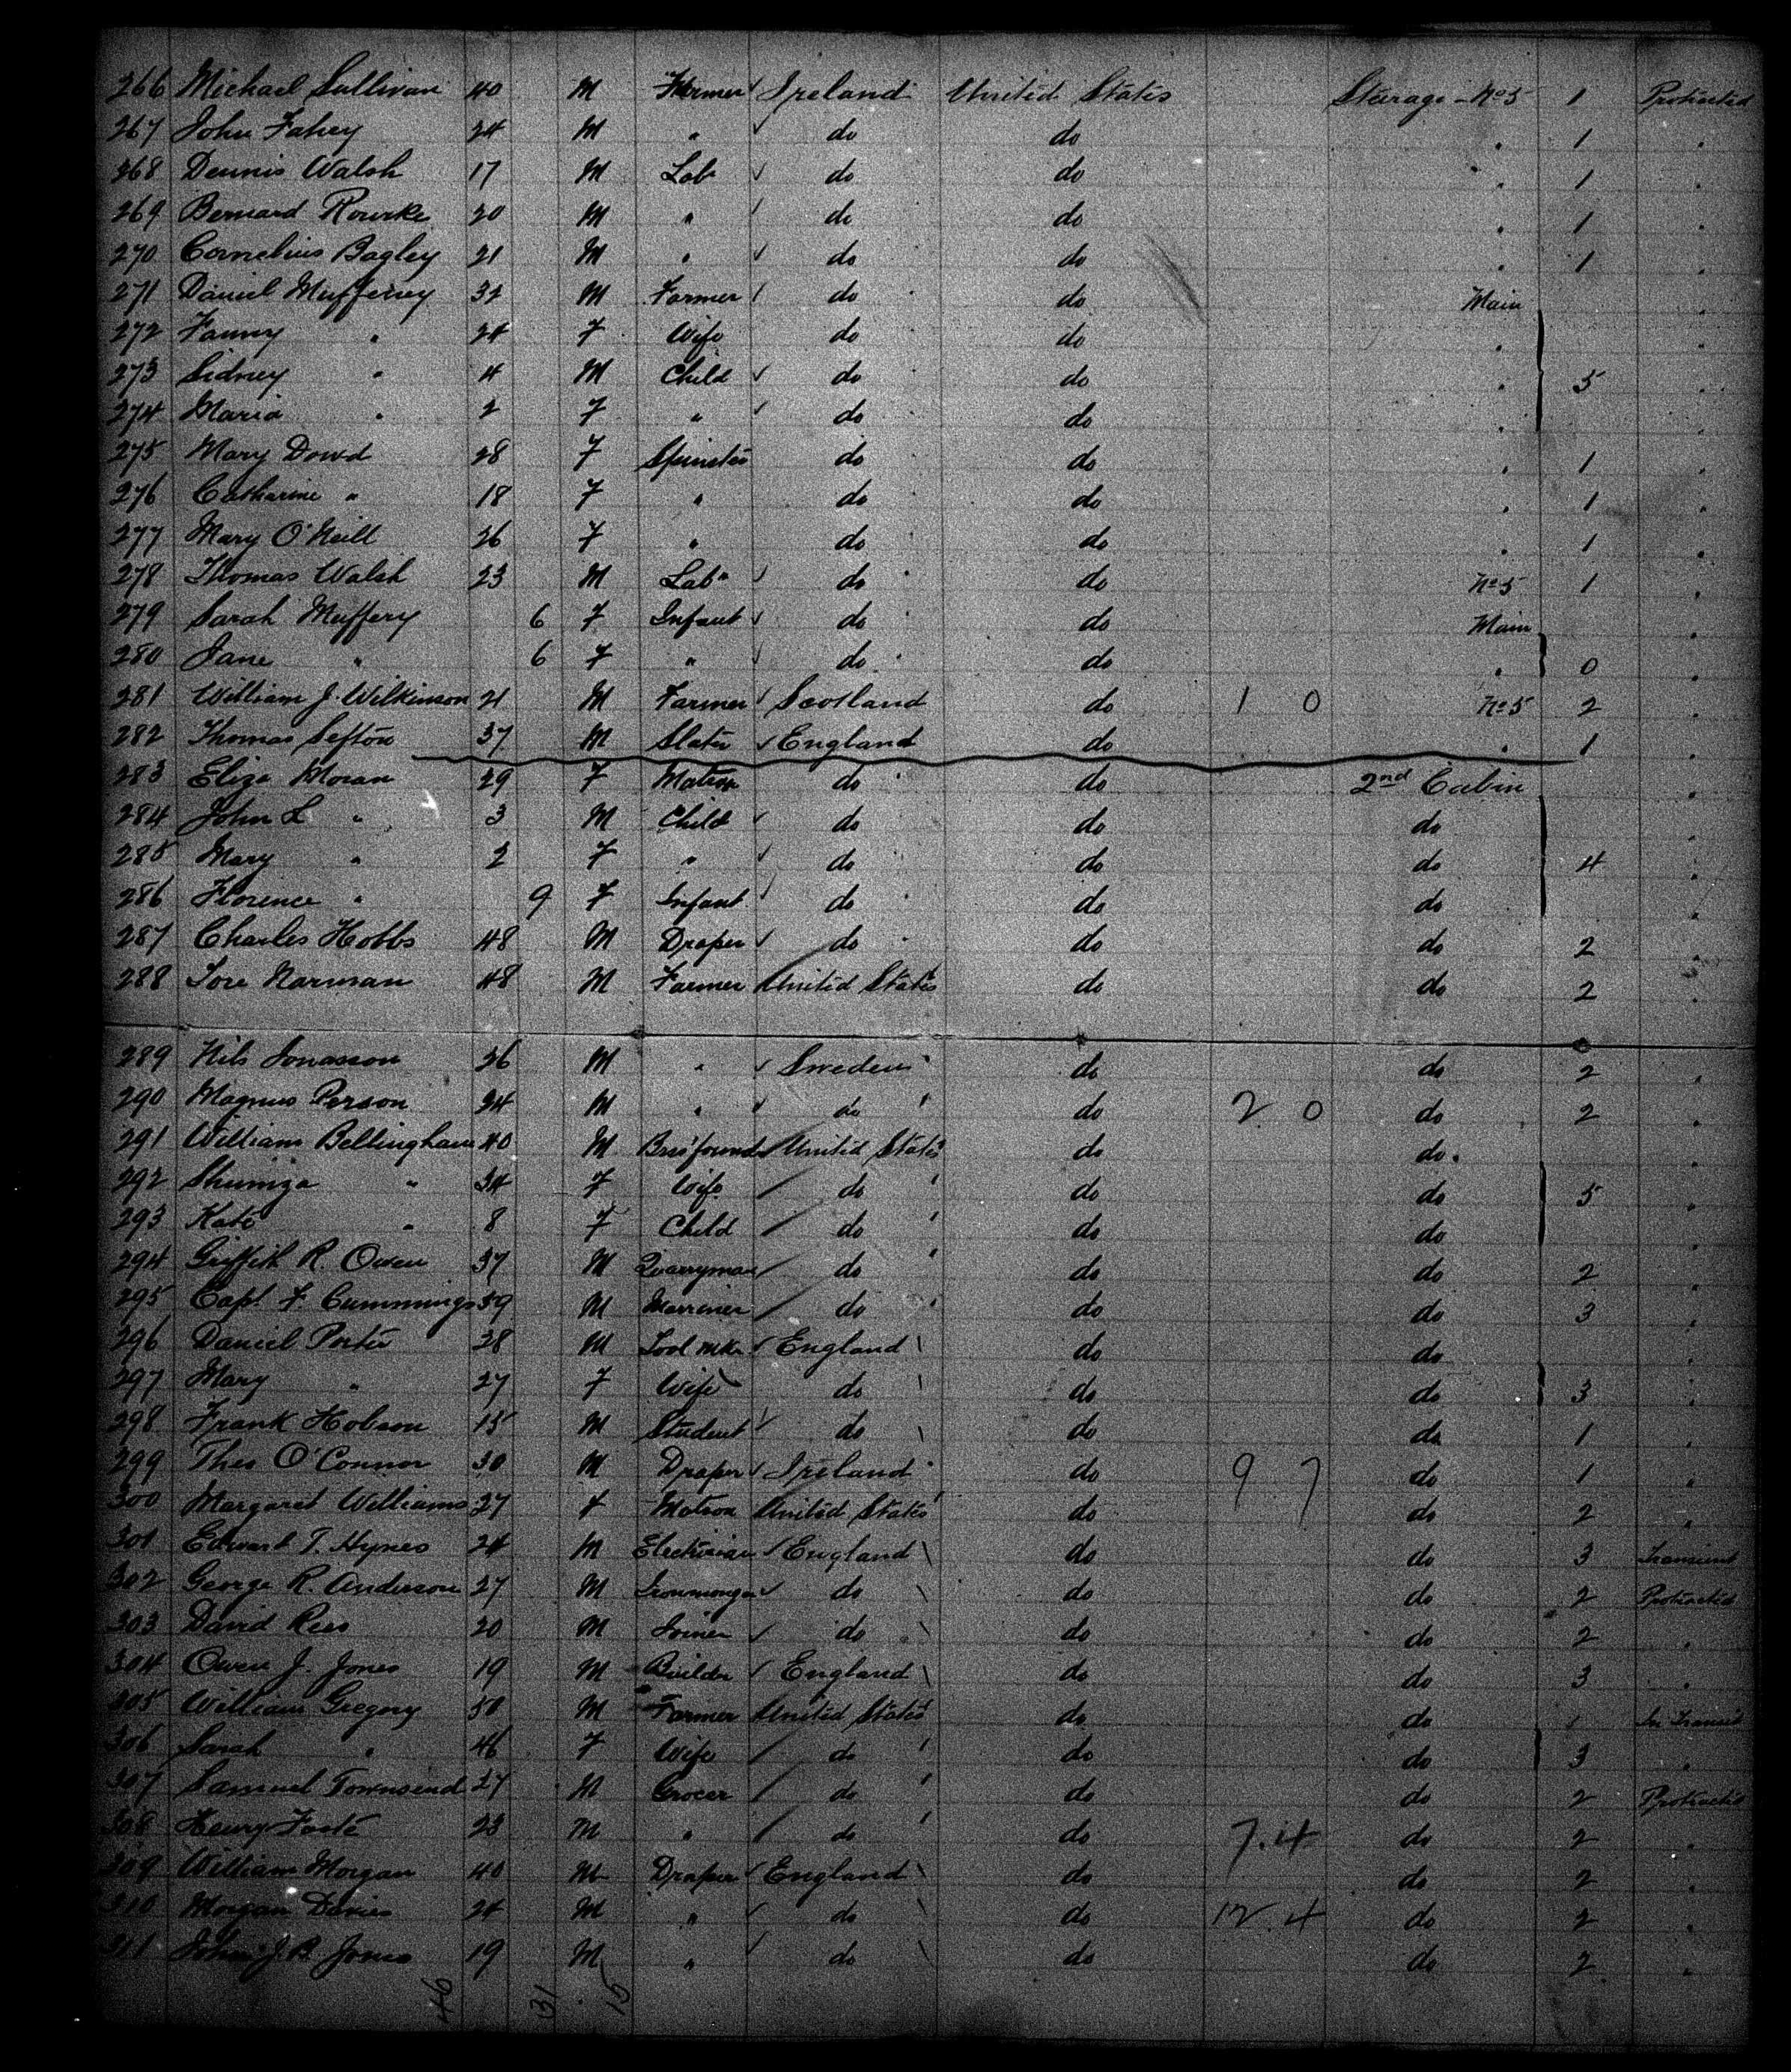 266 Michael Sullivan 40 M Farmer Ireland United States Sturage - No 5 1 Protracted
267 John Fahey 24 M " do do " 1 "
268 Dennis Walsh 17 M Labr do do " 1 "
269 Bernard Rourke 20 M " do do " 1 "
270 Cornelius Bagley 21 M " do do " 1 "
271 Daniel Mufferey 32 M Farmer do do Main "
272 Fanny " 24 F Wife do do " "
273 Sidney " 4 M Child do do " 5 "
274 Maria " 2 F " do do "
275 Mary Dowd 28 F Spinster do do " 1 "
276 Catharine " 18 F " do do " 1 "
277 Mary O'Neill 26 F " do do " 1 "
278 Thomas Walsh 23 M Labr do do No 5 1 "
279 Sarah Muffery 6 F Infant do do Main "
280 Jane " 6 F " do do " 0 "
281 William J. Wilkinson 21 M Farmer Scotland do 1 0 No 5 2 "
282 Thomas Sefton 37 M Slater England do " 1
283 Eliza Moran 29 F Matron do do 2nd Cabin "
284 John L " 3 M Child do do do "
285 Mary " 2 F " do do do 4 "
286 Florence " 9 F Infant do do do "
287 Charles Hobbs 48 M Draper do do do 2 "
288 Tore Narman 48 M Farmer United States do do 2 "
289 Nils Jonasson 26 M " Sweden do do 2 "
290 Magnus Person 34 M " do do 2 0 do 2 "
291 William Bellingham 40 M United States do do "
292 34 F Wife do do do 5 "
293 Kate " 8 F Child do do do "
294 Griffith R. Owen 37 M Quarryman do do do 2 "
295 Capt. F. Cummings 59 M Marriner do do do 3 "
296 Daniel Porter 28 M Tool mkr England do do "
297 Mary " 27 F Wife do do do 3 "
298 Frank Hobson 15 M Student do do do 1 "
299 Thos O'Connor 30 M Draper Ireland do 9 7 do 1 "
300 Margaret Williams 27 F Matron United States do do 2 "
301 Edward T. Hynes 24 M Electrician England do do 3 Transient
302 George R. Anderson 27 M Ironmonger do do do 2 Protracted
303 David Rees 20 M Joiner do do do 2 "
304 Owen J. Jones 19 M Builder England do do 3 "
305 William Gregory 50 M Farmer United States do do In Transit
306 Sarah " 46 F Wife do do do 3 "
307 Samuel Townsend 27 M Grocer do do do 2 Protracted
308 Henry Foste 23 M " do do 7.4 do 2 "
309 William Morgan 40 M Draper England do do 2 "
310 Morgan Davies 24 M " do do 12.4 do 2 "
311 John J. B. Jones 19 M " do do do 2 "
46 31 15